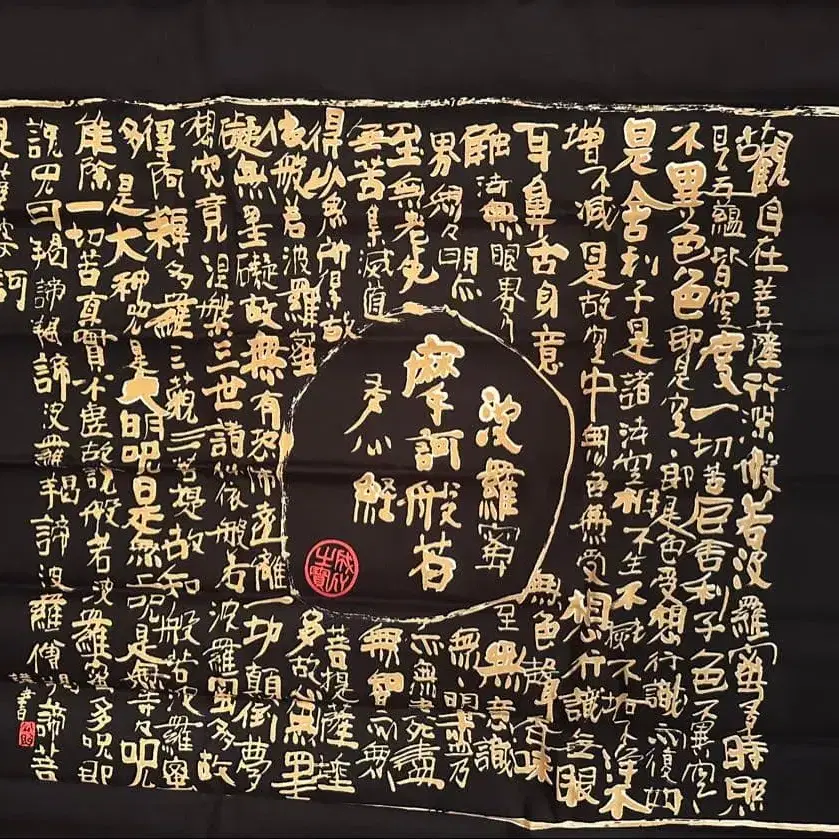 觀自在菩薩行深般若波羅蜜多時照
見五蘊皆空度一切苦厄舍利子色不異空々
不異色色即是空々即是色受想行識亦復如
是舍利子是諸法空相不生不滅不垢不淨不
增不減是故空中無色無受想行識無眼
耳鼻舌身意無色聲香味
觸法無眼界乃至無意識
界無々明亦無々明盡乃
至無老死亦無老死盡
無苦集滅道無智亦無
得以無所得故菩提薩埵
依般若波羅蜜多故心無罣
礙無罣礙故無有恐怖遠離一切顛倒夢
想究竟涅槃三世諸佛依般若波羅蜜多故
得阿耨多羅三藐三菩提故知般若波羅蜜
多是大神呪是大明呪是無上呪是無等々呪
能除一切苦真實不虛故說般若波羅蜜多呪即
說呪曰羯諦羯諦波羅羯諦波羅僧羯諦菩
提薩婆訶
波羅蜜
摩訶般若
多心經